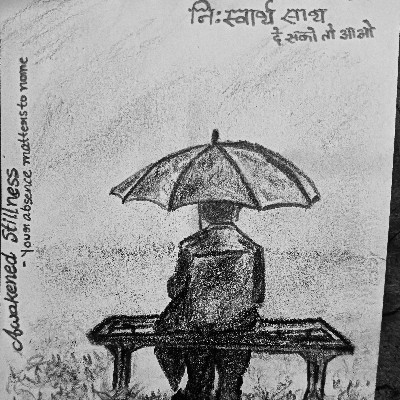 निःस्वार्थ साथ
दे सको तो आओ
Awakened Stillness
- Your absence matters to none